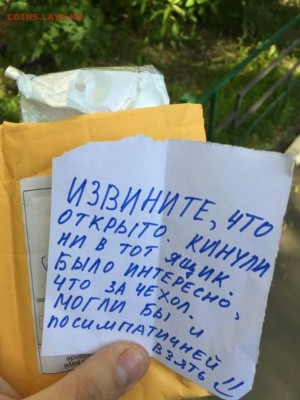 COINS.LAVE.RU
ИЗВИНИТЕ, ЧТО
ОТКРЫТО. КИНУЛИ
НИ В ТОТ ЯЩИК.
БЫЛО ИНТЕРЕСНО,
ЧТО ЗА ЧЕХОЛ.
МОГЛИ БЫ И
ПОСИМПАТИЧНЕЙ
ВЗЯТЬ